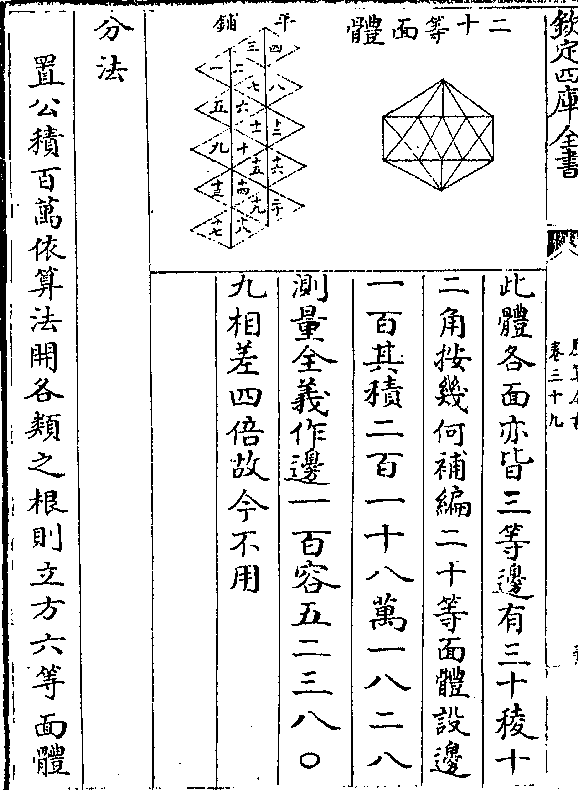 欽定四庫全書
卷二十九
二十等面體
平鋪
一
二
三
四
五
六
七
八
九
十
十一
十二
十三
十四
十五
十六
十七
十八
十九
二十
此體各面亦皆三等邊有三十稜十
二角按幾何補編二十等面體設邊
一百其積二百一十八萬一八二八
測量全義作邊一百容五二三八〇
九相差四倍故今不用
分法
置公積百萬依算法開各類之根則立方六等面體